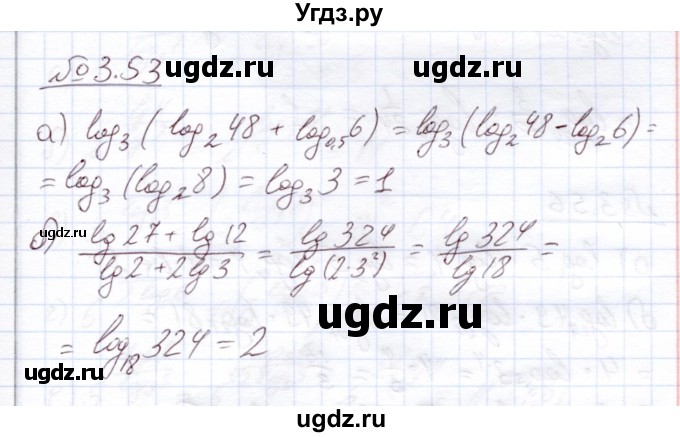 Угдз.ру
№ 3.53
ugdz.ru ugdz.ru
а) log₃( log₂48 + log₀,₅6) = log₃(log₂48 - log₂6) =
= log₃(log₂8) = log₃3 = 1
ugdz.ru
б) (lg 27 + lg 12)/(lg 2 + 2 lg 3) = lg 324/lg(2·3²) = lg 324/lg 18 =
ugdz.ru
= log₁₈324 = 2
ugdz.ru
ugdz.ru
ugdz.ru